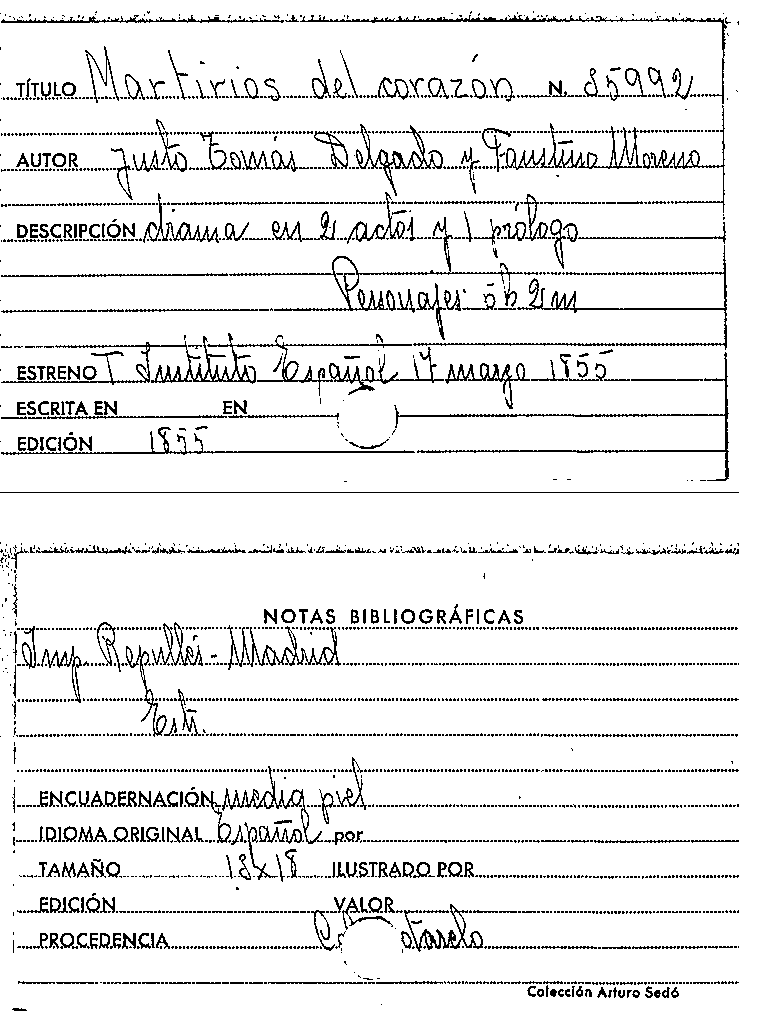 TÍTULO Martirios del corazón N. 85992
AUTOR Justo Tomás Delgado y Faustino Moreno
DESCRIPCIÓN drama en 2 actos y 1 prólogo
Personajes 5h 2m
ESTRENO T Instituto Español 17 marzo 1855
ESCRITA EN EN
EDICIÓN 1855
NOTAS BIBLIOGRÁFICAS
Imp. Repullés - Madrid
Estr.
ENCUADERNACIÓN media piel
IDIOMA ORIGINAL Español por
TAMAÑO 13x18 ILUSTRADO POR
EDICIÓN VALOR
PROCEDENCIA
Colección Arturo Sedó